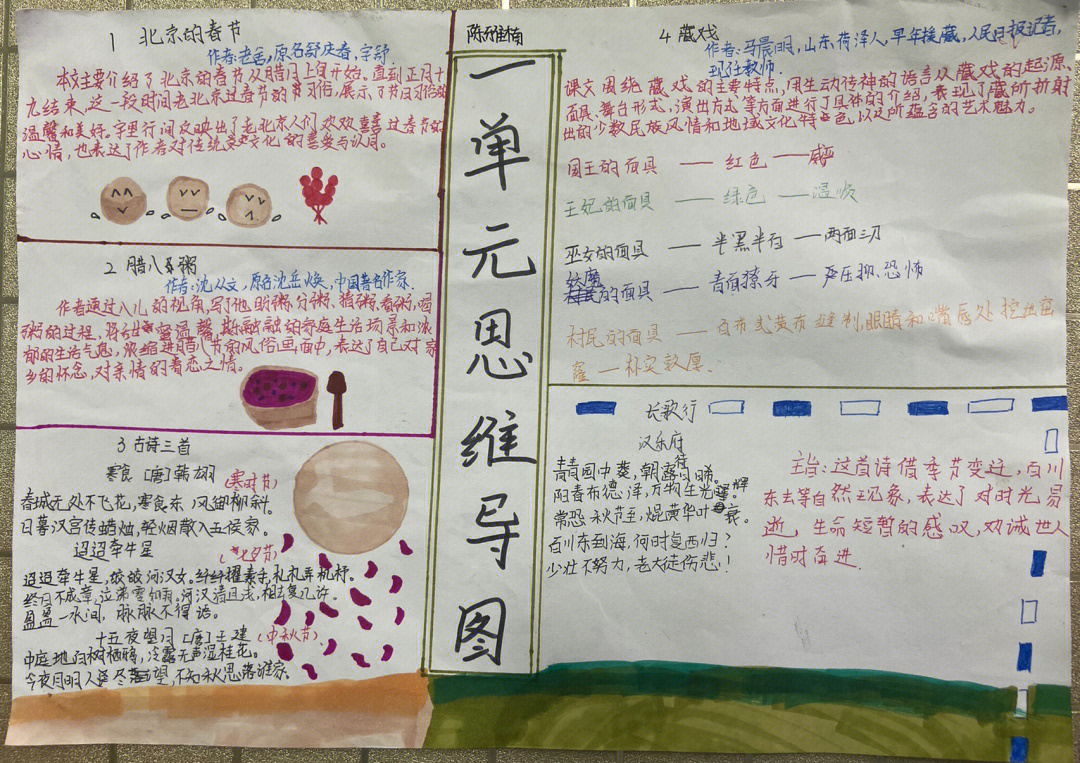 陈雅楠
一单元思维导图
1 北京的春节
作者:老舍,原名舒庆春,字舒
本文主要介绍了北京的春节从腊月上旬开始,直到正月十
九结束,这一段时间老北京过春节的节习俗,展示了节日习俗的
温馨和美好。字里行间反映出了老北京人们欢欢喜喜过春节的
心情,也表达了作者对传统文化的喜爱与认同。
2 腊八粥
作者:沈从文,原名沈岳焕,中国著名作家.
作者通过八儿的视角,写了他盼粥、分粥、猜粥、看粥、喝
粥的过程,将和温馨其融融的家庭生活场景和浓
郁的生活气息,浓缩进腊八节的风俗画面中,表达了自己对家
乡的怀念,对亲情的眷恋之情。
3 古诗三首
寒食 [唐]韩翃
(寒食节)
春城无处不飞花,寒食东风御柳斜。
日暮汉宫传蜡烛,轻烟散入五侯家。
迢迢牵牛星
(七夕节)
迢迢牵牛星,皎皎河汉女。纤纤擢素手,札札弄机杼。
终日不成章,泣涕零如雨。河汉清且浅,相去复几许。
盈盈一水间,脉脉不得语。
十五夜望月 [唐]王建 (中秋节)
中庭地白树栖鸦,冷露无声湿桂花。
今夜月明人尽望,不知秋思落谁家。
4 藏戏
作者:马晨明,山东菏泽人,早年援藏,人民日报记者,
现任教师.
课文围绕藏戏的主要特点,用生动传神的语言从藏戏的起源、
面具、舞台形式,演出方式等方面进行了具体的介绍,表现了藏所折射
出的少数民族风情和地域文化特色,以及所蕴含的艺术魅力。
国王的面具 — 红色 — 威严
王妃的面具 — 绿色 — 温顺
巫女的面具 — 半黑半白 — 两面三刀
妖魔的面具 — 青面獠牙 — 严压抑、恐怖
村民的面具 — 白布或黄布缝制,眼睛和嘴唇处挖出窟
窿 — 朴实敦厚.
长歌行
汉乐府
青青园中葵,朝露待日晞。
阳春布德泽,万物生光辉。
常恐秋节至,焜黄华叶衰。
百川东到海,何时复西归?
少壮不努力,老大徒伤悲!
主旨:这首诗借季节变迁,百川
东去等自然现象,表达了对时光易
逝,生命短暂的感叹,劝诫世人
惜时奋进.